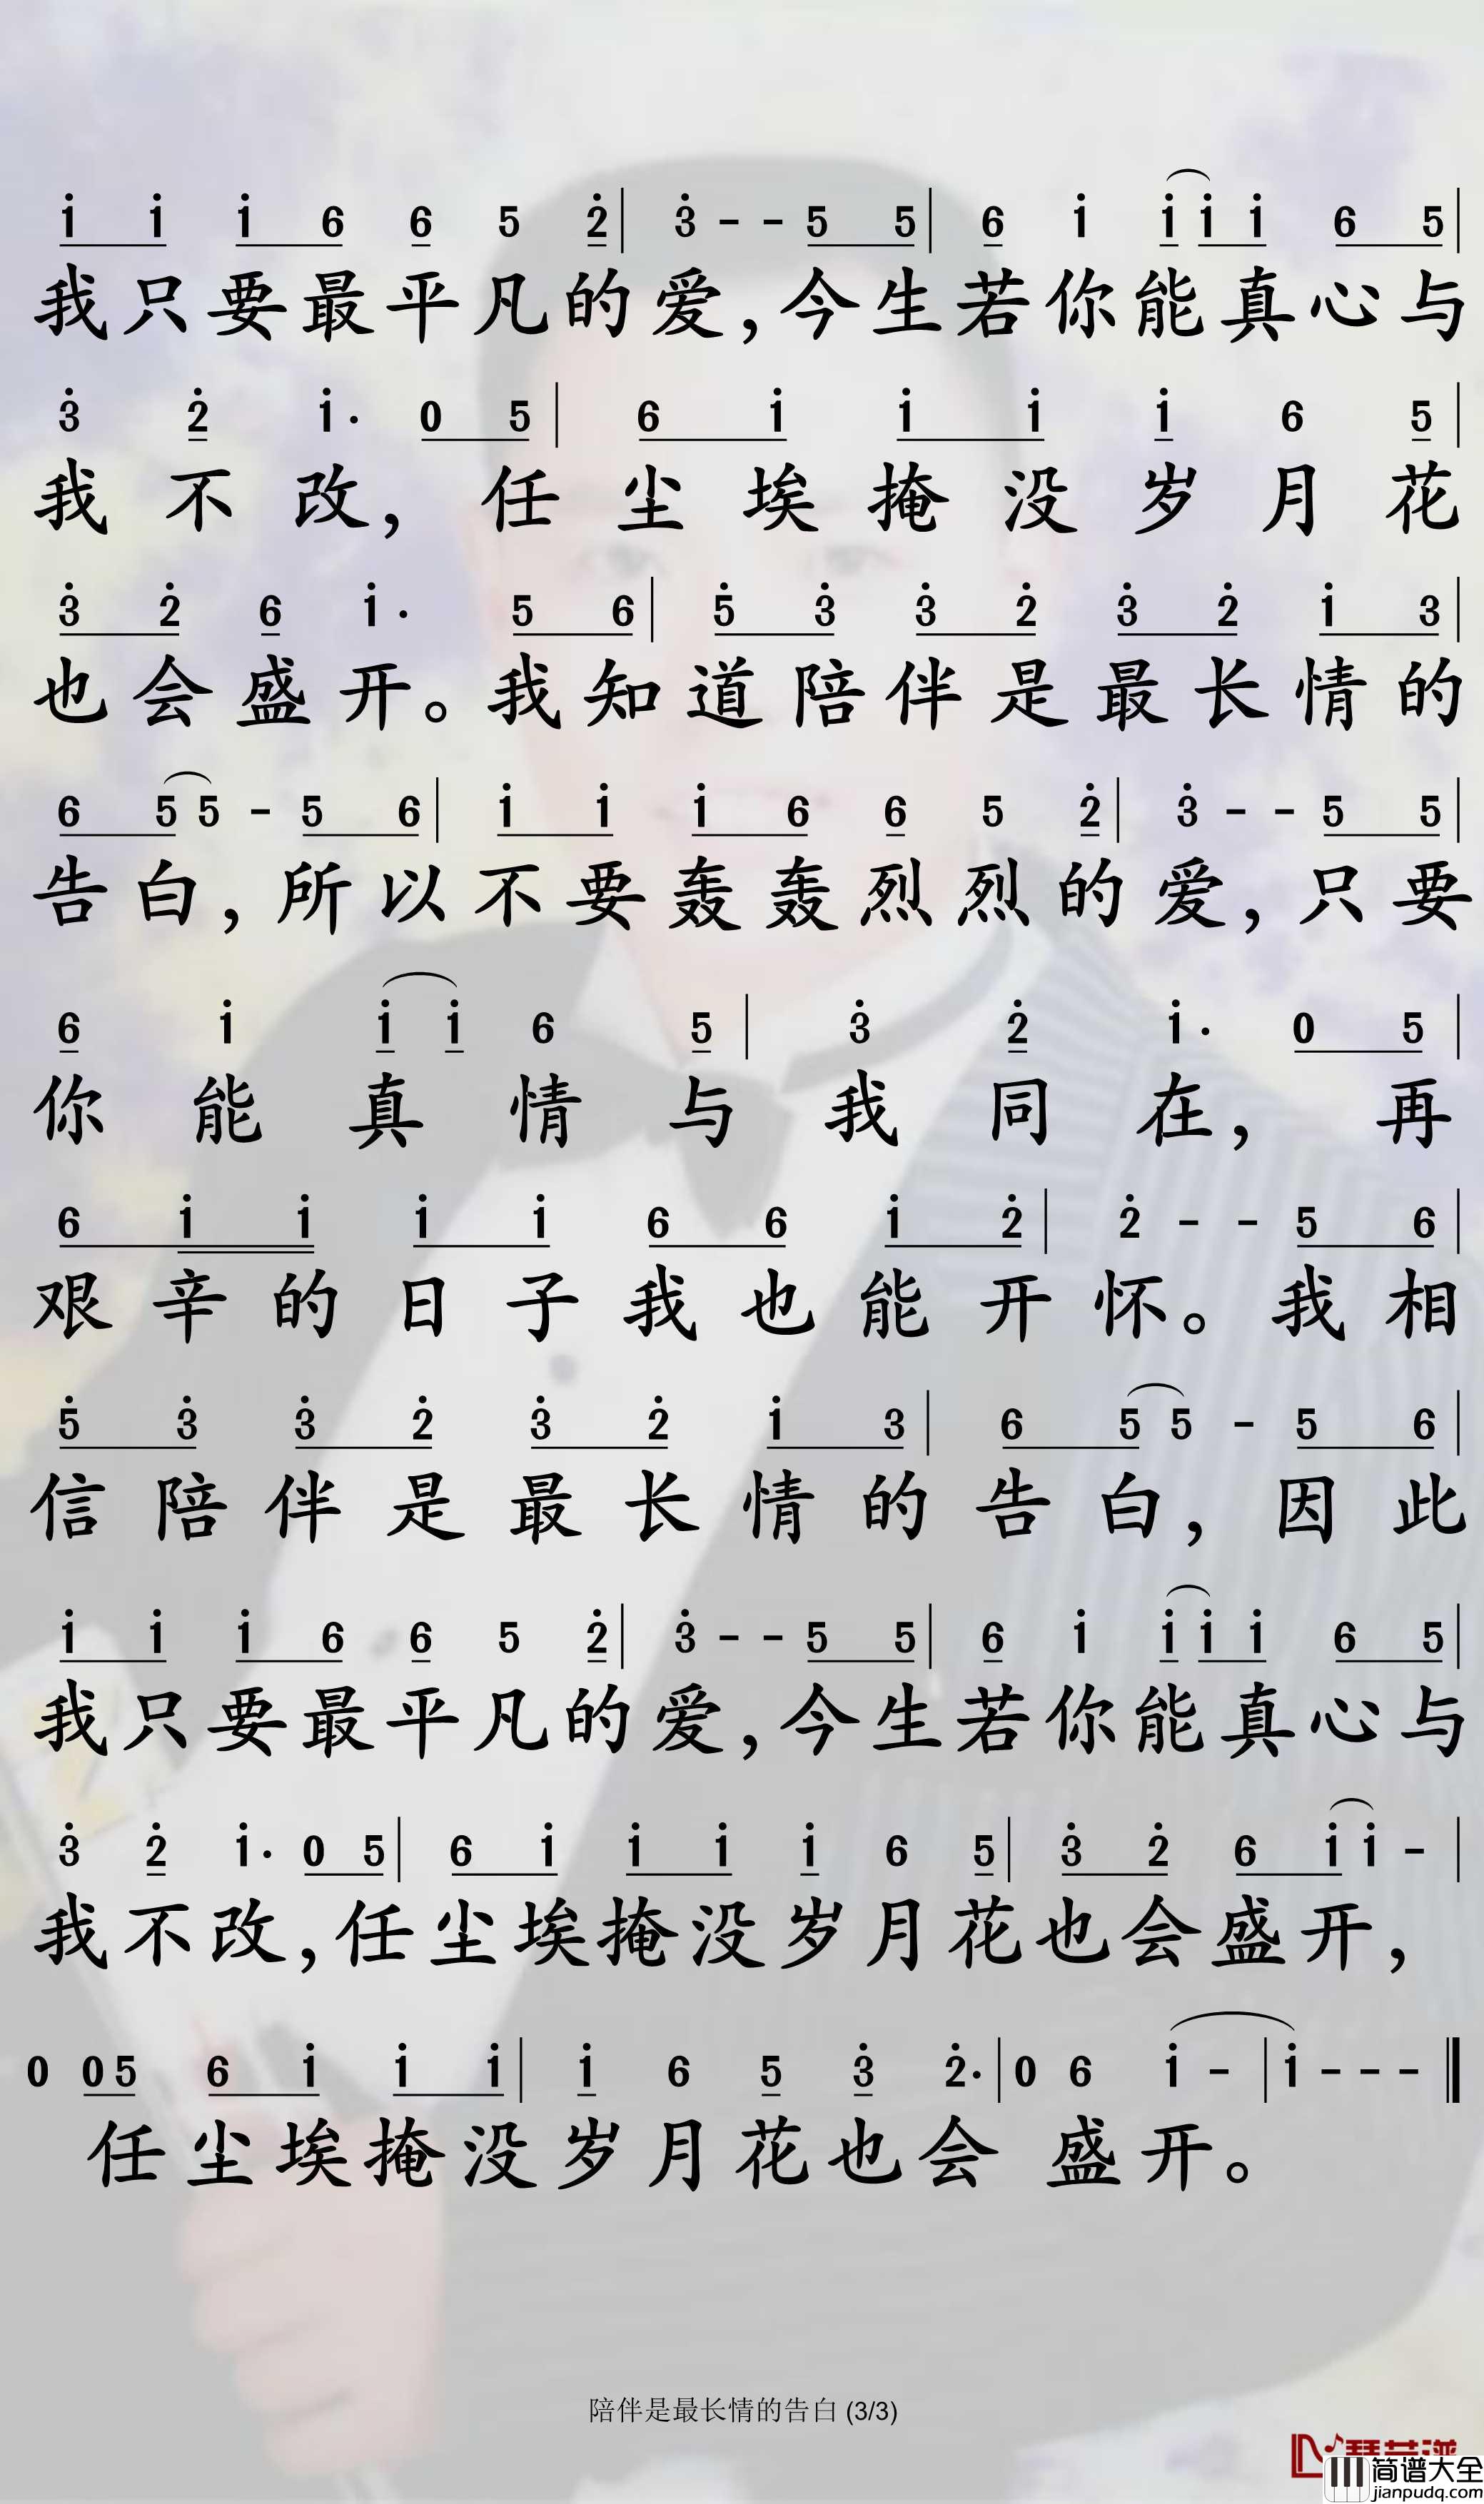 i i i 6 6 5 2 | 3 - - 5 5 | 6 i i i i 6 5 |
我只要最平凡的爱，今生若你能真心与
3 2 i · 0 5 | 6 i i i i 6 5 |
我不改，任尘埃掩没岁月花
3 2 6 i · 5 6 | 5 3 3 2 3 2 i 3 |
也会盛开。我知道陪伴是最长情的
6 5 5 - 5 6 | i i i 6 6 5 2 | 3 - - 5 5 |
告白，所以不要轰轰烈烈的爱，只要
6 i i i 6 5 | 3 2 i · 0 5 |
你能真情与我同在，再
6 i i i i 6 6 i 2 | 2 - - 5 6 |
艰辛的日子我也能开怀。我相
5 3 3 2 3 2 i 3 | 6 5 5 - 5 6 |
信陪伴是最长情的告白，因此
i i i 6 6 5 2 | 3 - - 5 5 | 6 i i i i 6 5 |
我只要最平凡的爱，今生若你能真心与
3 2 i · 0 5 | 6 i i i i 6 5 | 3 2 6 i i - |
我不改，任尘埃掩没岁月花也会盛开，
0 0 5 6 i i i | i 6 5 3 2 · | 0 6 i - | i - - - ||
任尘埃掩没岁月花也会盛开。
陪伴是最长情的告白 (3/3)
简谱大全
jianpudq.com